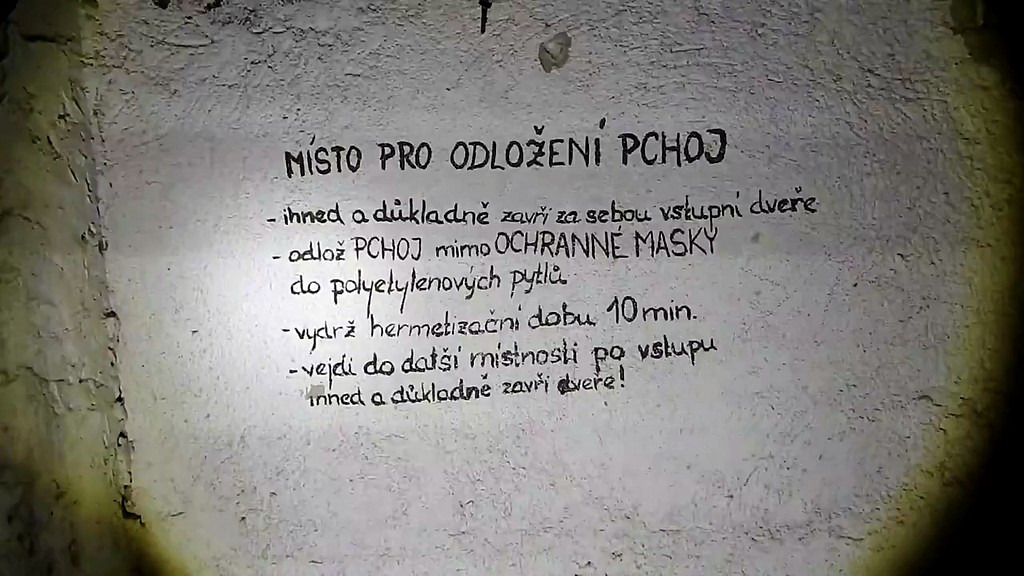 MÍSTO PRO ODLOŽENÍ PCHOJ
- ihned a důkladně zavři za sebou vstupní dveře
- odlož PCHOJ mimo OCHRANNÉ MASKY
do polyetylenových pytlů
- vydrž hermetizační dobu 10 min.
- vejdi do další místnosti po vstupu
ihned a důkladně zavři dveře!